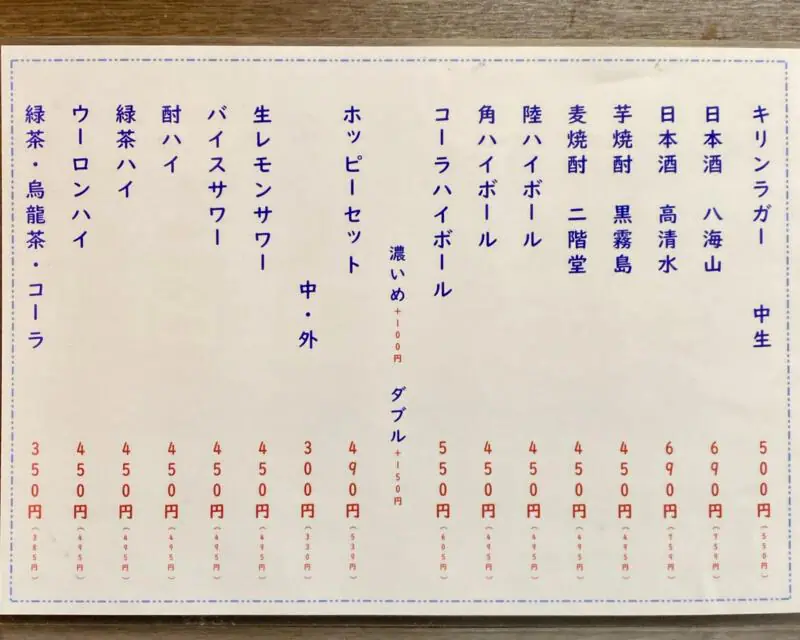 キリンラガー 中生 500円(550円)
日本酒 八海山 690円(759円)
日本酒 高清水 690円(759円)
芋焼酎 黒霧島 450円(495円)
麦焼酎 二階堂 450円(495円)
陸ハイボール 450円(495円)
角ハイボール 450円(495円)
コーラハイボール 550円(605円)
濃いめ+100円 ダブル+150円
ホッピーセット 490円(539円)
中・外 300円(330円)
生レモンサワー 450円(495円)
バイスサワー 450円(495円)
酎ハイ 450円(495円)
緑茶ハイ 450円(495円)
ウーロンハイ 450円(495円)
緑茶・烏龍茶・コーラ 350円(385円)